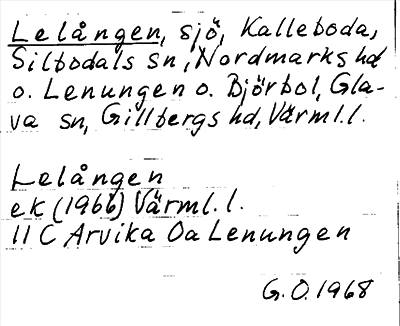 Lelången, sjö, Kalleboda,
Silbodals sn, Nordmarks hd
o. Lenungen o. Björbol, Gla-
va sn, Gillbergs hd, Värml. l.
Lelången
ek (1966) Värml. l.
11 C Arvika Oa Lenungen
G. O. 1968